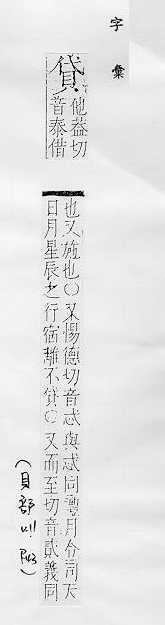 字彙
貸 他蓋切
音泰借
也又施也〇又惕德切音忒與忒同禮月令司天
日月星辰之行宿離不貸〇又而至切音貳義同
(貝部